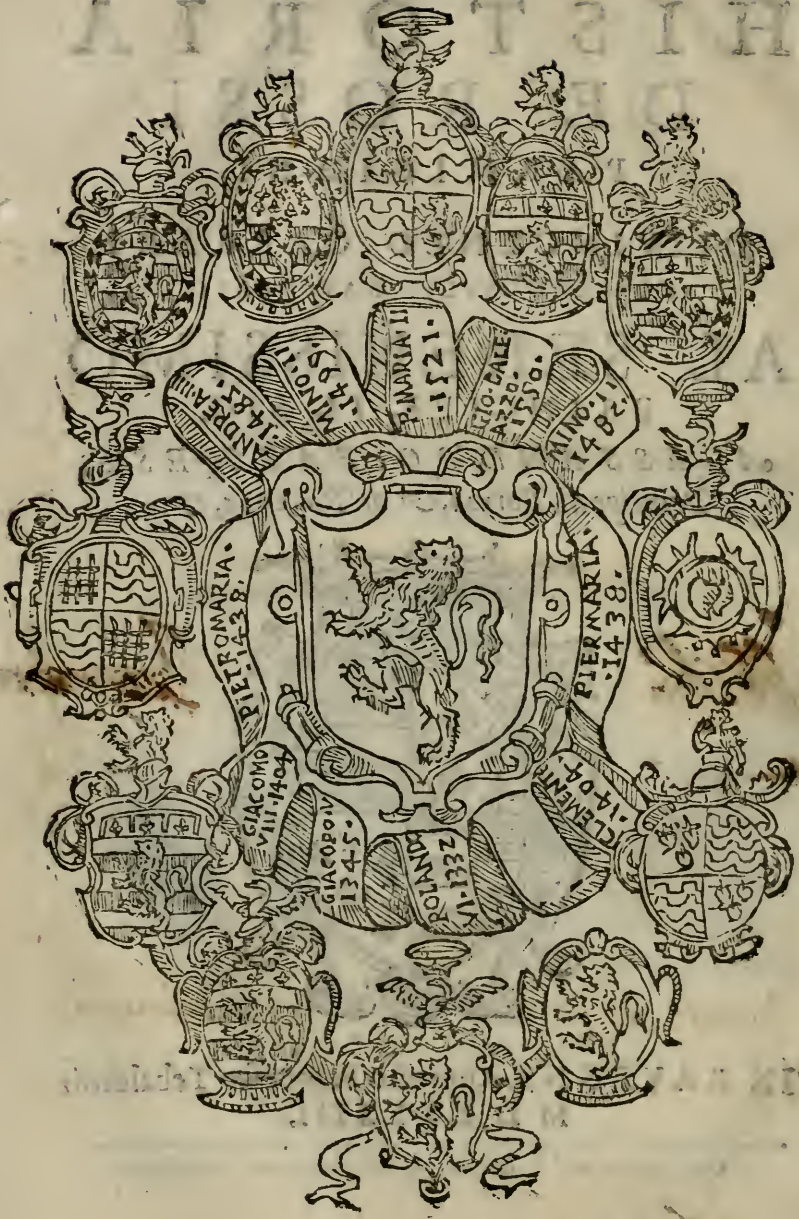 ANDREA III
1485.
MINO. II
.1499.
P. MARIA II
.1521.
GIO. GALE
AZZO.
1550.
MINO. II
1482.
PIETROMARIA.
.1438.
PIERMARIA.
.1438.
GIACOMO
VIII.1404
GIACOPO.V
1345.
ROLANDO
VI.1332
CLEMENTE
.1404.